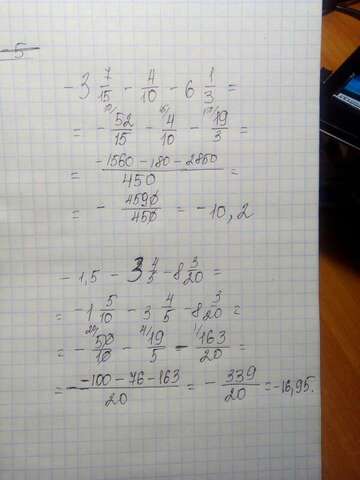 5
- 3 7/15 - 4/10 - 6 1/3 =
= - 52/15 - 4/10 - 19/3 =
= -1560 - 180 - 2850 / 450 =
= - 4590/450 = -10,2
- 1,5 - 3 4/5 - 8 3/20 =
= -1 5/10 - 3 4/5 - 8 3/20 =
= - 50/10 - 19/5 - 163/20 =
= - -100 - 76 - 163 / 20 = - 339/20 = -16,95.